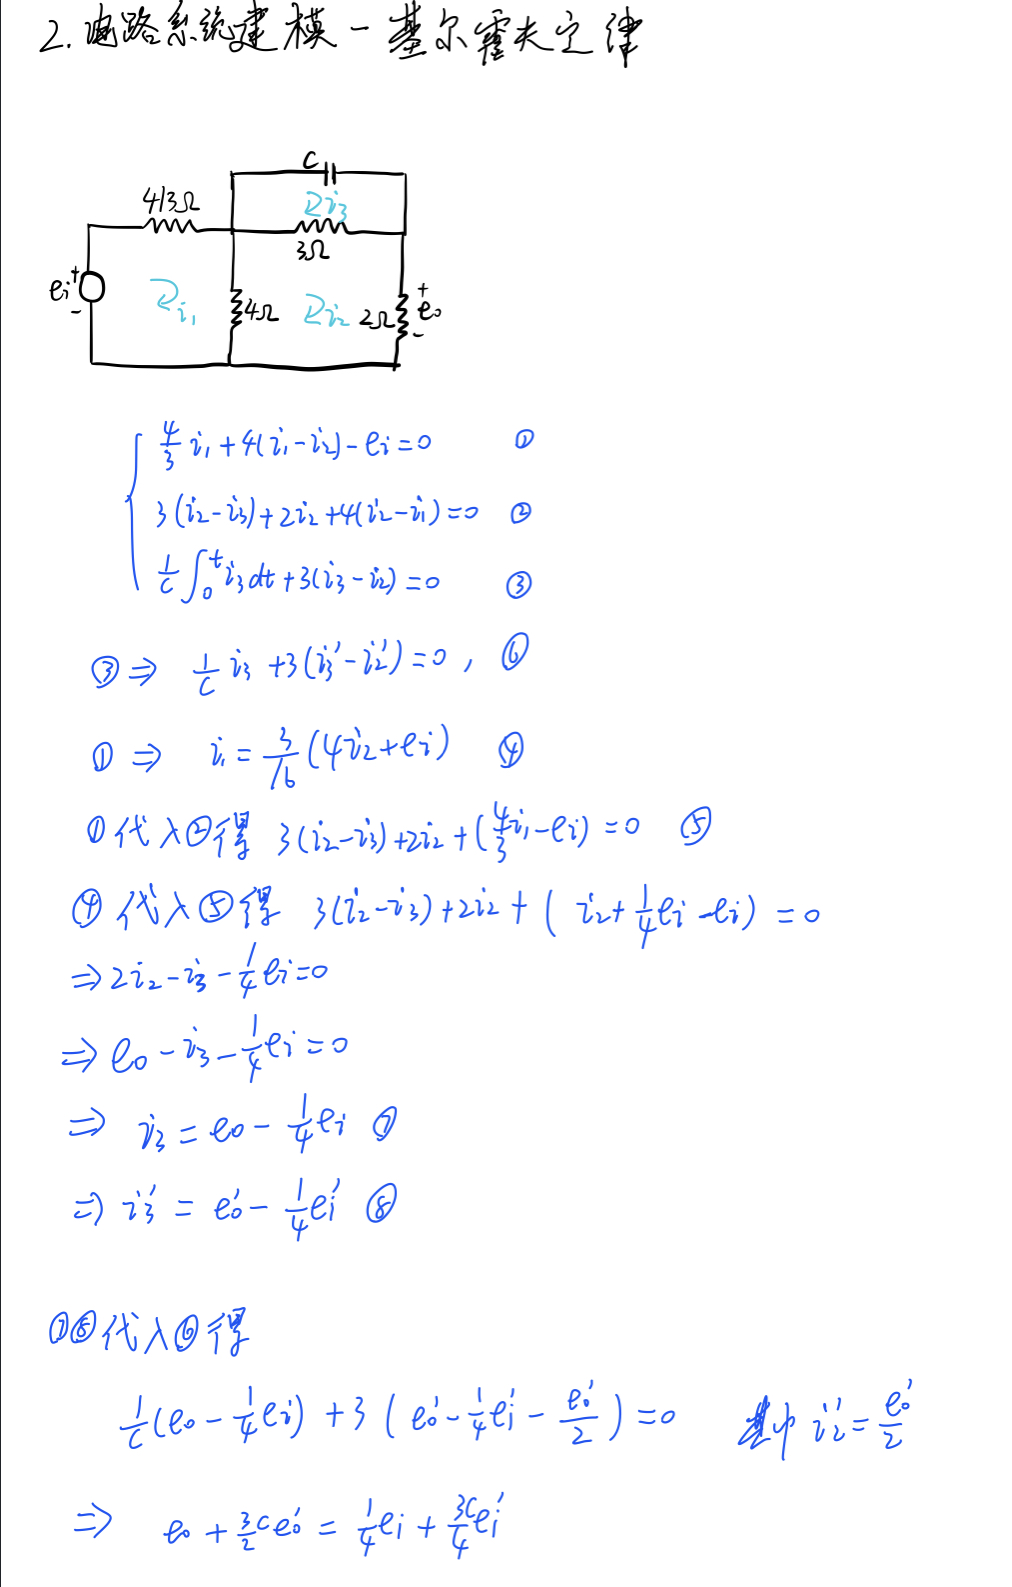 2. 电路系统建模 - 基尔霍夫定律
C
4/3Ω
i₃
3Ω
eᵢ + -
i₁
4Ω
i₂
2Ω
+ e₀ -
4/3 i₁ + 4(i₁ - i₂) - eᵢ = 0 ①
3(i₂ - i₃) + 2i₂ + 4(i₂ - i₁) = 0 ②
1/C ∫₀ᵗ i₃ dt + 3(i₃ - i₂) = 0 ③
③ ⇒ 1/C i₃ + 3(i₃' - i₂') = 0 , ⑥
① ⇒ i₁ = 3/16 (4i₂ + eᵢ) ④
①代入②得 3(i₂ - i₃) + 2i₂ + (4/3 i₁ - eᵢ) = 0 ⑤
④代入⑤得 3(i₂ - i₃) + 2i₂ + (i₂ + 1/4 eᵢ - eᵢ) = 0
⇒ 2i₂ - i₃ - 1/4 eᵢ = 0
⇒ e₀ - i₃ - 1/4 eᵢ = 0
⇒ i₃ = e₀ - 1/4 eᵢ ⑦
⇒ i₃' = e₀' - 1/4 eᵢ' ⑧
⑦⑧代入⑥得
1/C (e₀ - 1/4 eᵢ) + 3(e₀' - 1/4 eᵢ' - e₀'/2) = 0 其中 i₂' = e₀'/2
⇒ e₀ + 3/2 C e₀' = 1/4 eᵢ + 3C/4 eᵢ'